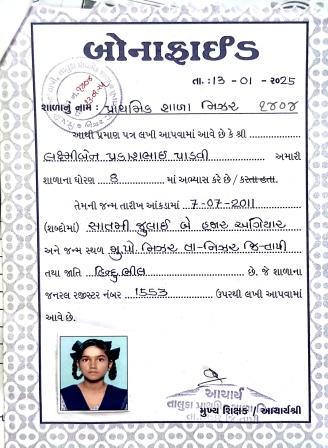 બોનાફાઈડ
તા. :13 - 01 - 2025
શાળાનું નામ : પ્રાથમિક શાળા નિઝર ૨૪૦૪
આથી પ્રમાણ પત્ર લખી આપવામાં આવે છે કે શ્રી
લક્ષ્મીબેન પ્રકાશભાઈ પાડવી અમારી
શાળાના ધોરણ 8 માં અભ્યાસ કરે છે / કરતા હતા.
તેમની જન્મ તારીખ આંકડામાં 7-07-2011
(શબ્દોમાં) સાતમી જુલાઈ બે હજાર અગિયાર
અને જન્મ સ્થળ મુ.પો. નિઝર તા-નિઝર જિ-તાપી
તથા જાતિ હિન્દુ ભીલ છે. જે શાળાના
જનરલ રજીસ્ટર નંબર 1553 ઉપરથી લખી આપવામાં
આવે છે.
આચાર્ય
મુખ્ય શિક્ષક / આચાર્યશ્રી